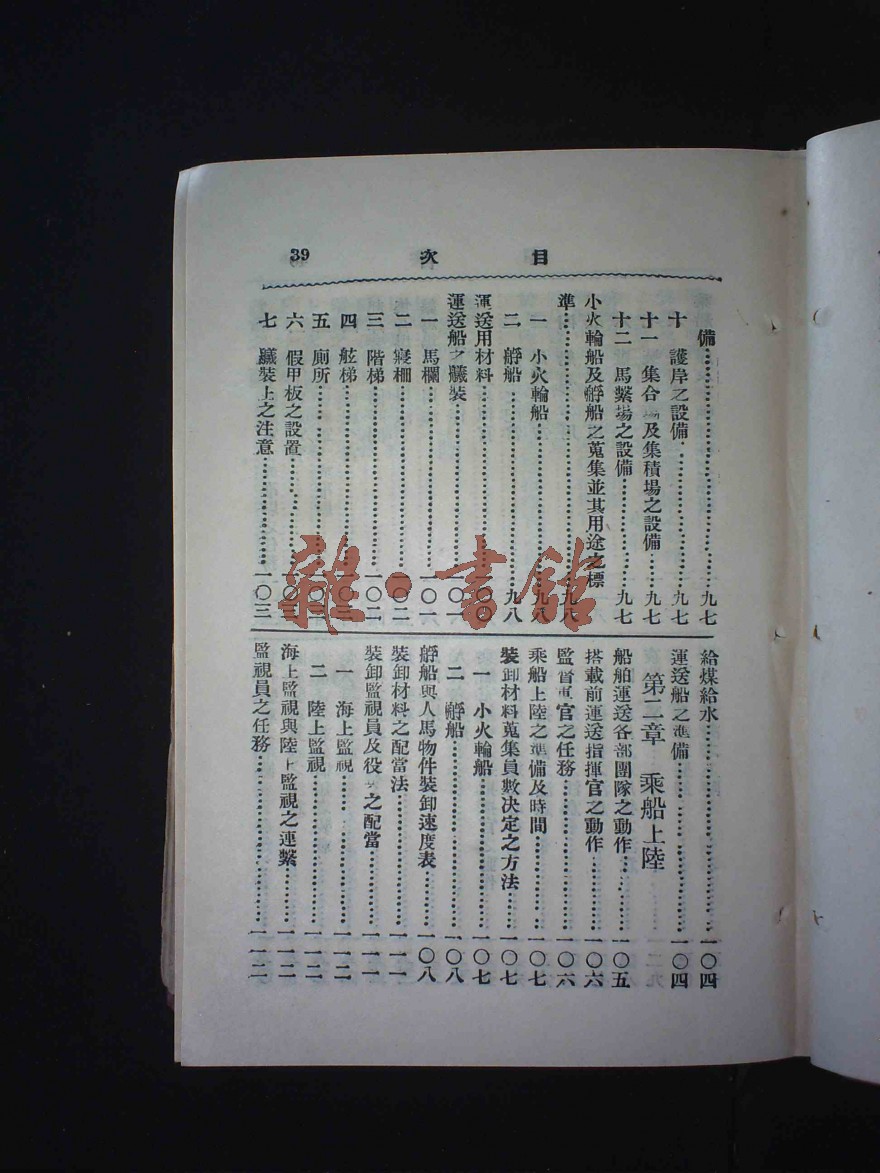 目次 39
備……九七
十 護岸之設備……九七
十一 集合場及集積場之設備……九七
十二 馬繫場之設備……九七
小火輪船及艀船之蒐集並其用途之標
準……九八
一 小火輪船……九八
二 艀船……九八
運送用材料……一〇〇
運送船之艤裝……一〇一
一 馬欄……一〇一
二 寢棚……一〇二
三 階梯……一〇二
四 舷梯……一〇三
五 廁所……一〇三
六 假甲板之設置……一〇三
七 艤裝上之注意……一〇三
給煤給水……一〇四
運送船之準備……一〇四
第二章 乘船上陸
船舶運送各部團隊之動作……一〇五
搭載前運送指揮官之動作……一〇六
監督官之任務……一〇六
乘船上陸之準備及時間……一〇七
裝卸材料蒐集員數決定之方法……一〇七
一 小火輪船……一〇七
二 艀船……一〇八
艀船與人馬物件裝卸速度表……一〇八
裝卸材料之配當法……一一一
裝卸監視員及役之配當……一一一
一 海上監視……一一二
二 陸上監視……一一二
海上監視與陸上監視之連繫……一一二
監視員之任務……一一二
雜·書館